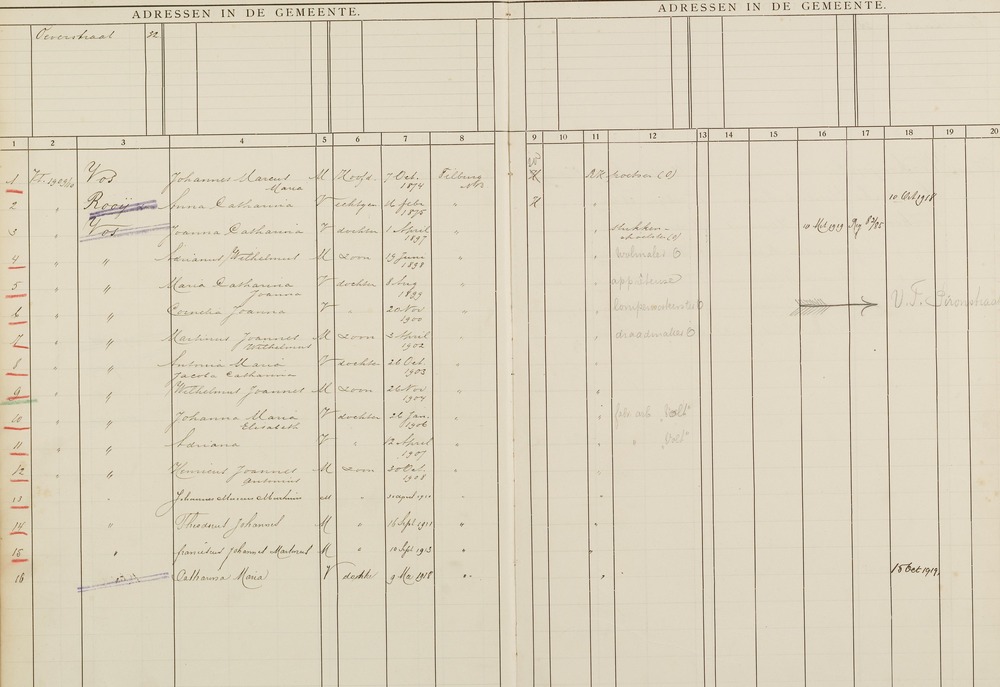 ADRESSEN IN DE GEMEENTE.
ADRESSEN IN DE GEMEENTE.
Oeverstraat 32
1 2 3 4 5 6 7 8 9 10 11 12 13 14 15 16 17 18 19 20
1 Vt. 1909/10 Vos Johannes Marcus Maria M Hoofd 7 Oct. 1874 Tilburg H RK
2 " Rooij Anna Catharina V echtgen 16 febr 1875 " H 10 Oct 1918
3 " Vos Joanna Catharina V dochter 1 April 1897 " 10 Mei 1919
4 " " Adrianus Wilhelmus M zoon 19 Juni 1898 "
5 " " Maria Catharina Joanna V dochter 8 Aug 1899 "
6 " " Cornelia Joanna V " 20 Nov 1900 "
7 " " Martinus Joannes Wilhelmus M zoon 2 April 1902 " draadmaker
8 " " Antonia Maria Jacoba Catharina V dochter 26 Oct. 1903
9 " " Wilhelmus Joannes M zoon 26 Nov 1904 "
10 " " Johanna Maria Elisabeth V dochter 26 Jan. 1906 " "Volt"
11 " " Adriana V " 12 April 1907 " " "Volt"
12 " " Henricus Joannes Antonius M zoon 30 Oct. 1908 "
13 " Johannes Marcus M " august
14 " Theodorus Johannes M " 16 Sept 1911 "
15 " Franciscus Johannes Martinus M " 10 Sept 1913 "
16 Catharina Maria V dochter 9 Mei 1918 " 18 Oct 1919.